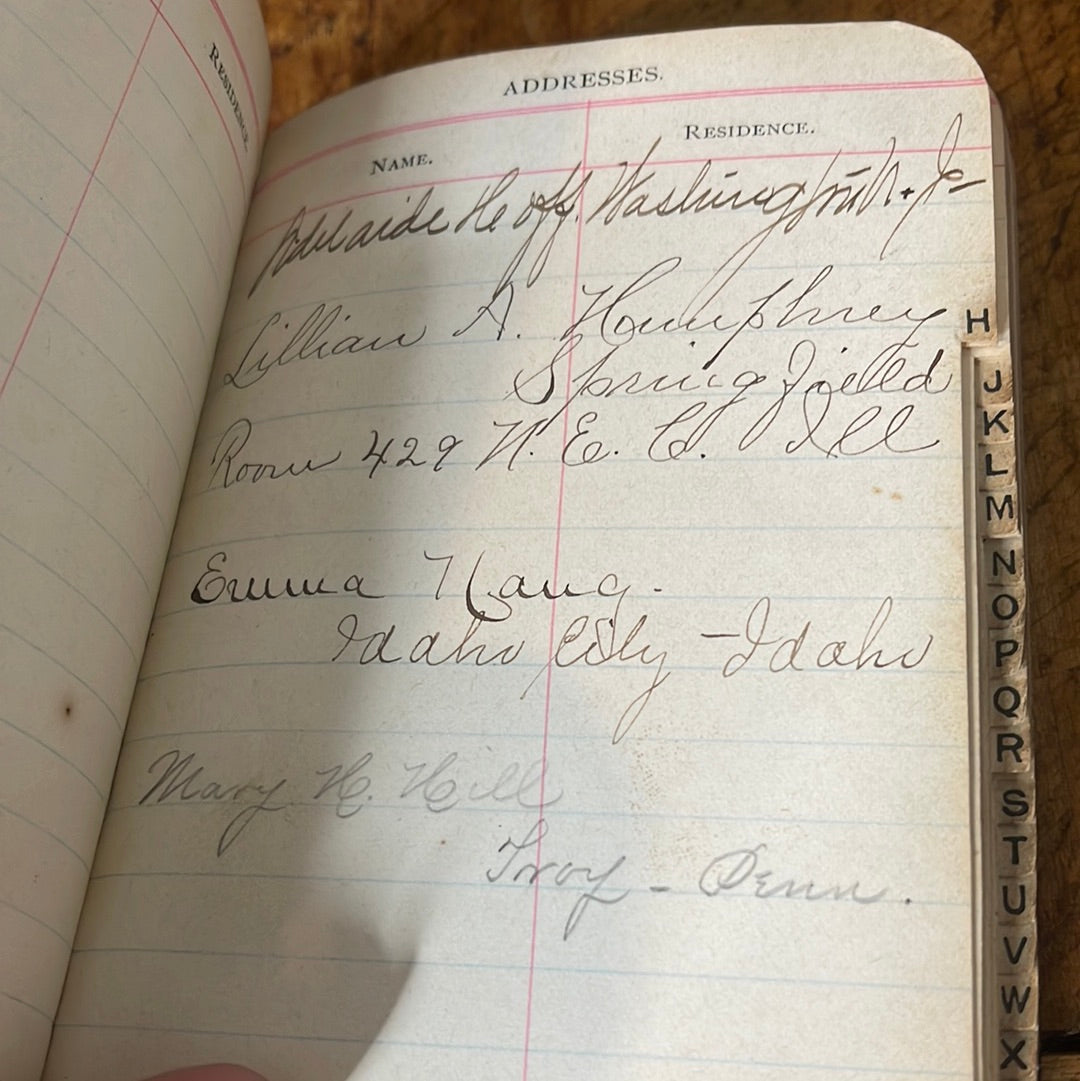 RESIDENCE.
ADDRESSES.
NAME. RESIDENCE.
Adelaide Hoff. Washington
Lillian A. Humphrey
Springfield
Room 429 N. E. C. Ill
Emma Haug.
Idaho City - Idaho
Mary H. Hill
Troy - Penn.
H
J
K
L
M
N
O
P
Q
R
S
T
U
V
W
X